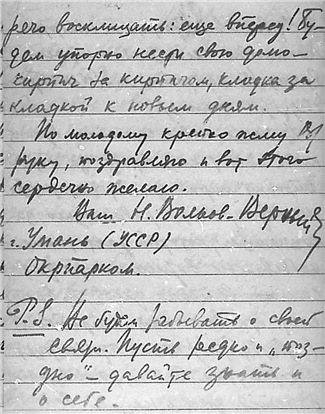 речо восклицать: еще вперед! Бу-
дем упорно нести свою демо-
кирпич за кирпичом, кладка за
кладкой к новым дням.
По молодому крепко жму
руку, поздравляю и вот этого
сердечно желаю.
Ваш Н. Волков-
г. Умань (УССР)
Окрпарком.
P.S. Не будем забывать о своей
связи. Пусть редко и „поз-
дно" – давайте знать и
о себе.